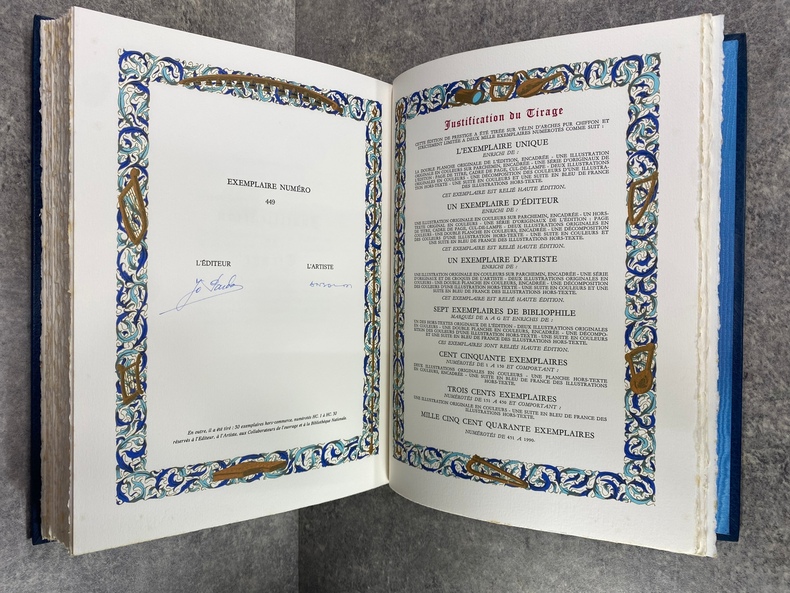 EXEMPLAIRE NUMÉRO
449
L'ÉDITEUR
L'ARTISTE
En outre, il a été tiré : 50 exemplaires hors commerce, numérotés HC. 1 à HC. 50
réservés à l'Éditeur, à l'Artiste, aux Collaborateurs de l'ouvrage et à la Bibliothèque Nationale.
Justification du Tirage
CETTE ÉDITION DE PRESTIGE A ÉTÉ TIRÉE SUR VÉLIN D'ARCHES PUR CHIFFON ET
STRICTEMENT LIMITÉE A DEUX MILLE EXEMPLAIRES NUMÉROTÉS COMME SUIT :
L'EXEMPLAIRE UNIQUE
ENRICHI DE :
LA DOUBLE PLANCHE ORIGINALE DE L'ÉDITION, ENCADRÉE - UNE ILLUSTRATION
ORIGINALE EN COULEURS SUR PARCHEMIN, ENCADRÉE - UNE SÉRIE D'ORIGINAUX DE
L'ÉDITION : PAGE DE TITRE, CADRE DE PAGE, CUL-DE-LAMPE - DEUX ILLUSTRATIONS
ORIGINALES EN COULEURS - UNE DÉCOMPOSITION DES COULEURS D'UNE ILLUSTRATION
HORS-TEXTE - UNE SUITE EN COULEURS ET UNE SUITE EN BLEU DE FRANCE
DES ILLUSTRATIONS HORS-TEXTE.
CET EXEMPLAIRE EST RELIÉ HAUTE ÉDITION.
UN EXEMPLAIRE D'ÉDITEUR
ENRICHI DE :
UNE ILLUSTRATION ORIGINALE EN COULEURS SUR PARCHEMIN, ENCADRÉE - UN HORS-
TEXTE ORIGINAL EN COULEURS - UNE SÉRIE D'ORIGINAUX DE L'ÉDITION : PAGE
DE TITRE, CADRE DE PAGE, CUL-DE-LAMPE - UNE DOUBLE PLANCHE EN COULEURS, ENCADRÉE - UNE DÉCOMPOSITION
DES COULEURS D'UNE ILLUSTRATION HORS-TEXTE - UNE SUITE EN COULEURS ET
UNE SUITE EN BLEU DE FRANCE DES ILLUSTRATIONS HORS-TEXTE.
CET EXEMPLAIRE EST RELIÉ HAUTE ÉDITION.
UN EXEMPLAIRE D'ARTISTE
ENRICHI DE :
UNE ILLUSTRATION ORIGINALE EN COULEURS SUR PARCHEMIN, ENCADRÉE - UNE SÉRIE
D'ORIGINAUX ET DE CROQUIS DE L'ARTISTE - UNE DOUBLE PLANCHE EN COULEURS, ENCADRÉE - UNE DÉCOMPOSITION
DES COULEURS D'UNE ILLUSTRATION HORS-TEXTE - UNE SUITE EN COULEURS ET UNE
SUITE EN BLEU DE FRANCE DES ILLUSTRATIONS HORS-TEXTE.
CET EXEMPLAIRE EST RELIÉ HAUTE ÉDITION.
SEPT EXEMPLAIRES DE BIBLIOPHILE
MARQUÉS DE A A G ET ENRICHIS DE :
UN DES HORS-TEXTES ORIGINAUX DE L'ÉDITION - DEUX ILLUSTRATIONS ORIGINALES
EN COULEURS - UNE DOUBLE PLANCHE EN COULEURS, ENCADRÉE - UNE DÉCOMPO-
SITION DES COULEURS D'UNE ILLUSTRATION HORS-TEXTE - UNE SUITE EN COULEURS
ET UNE SUITE EN BLEU DE FRANCE DES ILLUSTRATIONS HORS-TEXTE.
CES EXEMPLAIRES SONT RELIÉS HAUTE ÉDITION.
CENT CINQUANTE EXEMPLAIRES
NUMÉROTÉS DE 1 A 150 ET COMPORTANT :
DEUX ILLUSTRATIONS ORIGINALES EN COULEURS - UNE PLANCHE HORS-TEXTE
EN COULEURS, ENCADRÉE - UNE SUITE EN BLEU DE FRANCE DES ILLUSTRATIONS
HORS-TEXTE.
TROIS CENTS EXEMPLAIRES
NUMÉROTÉS DE 151 A 450 ET COMPORTANT :
UNE ILLUSTRATION ORIGINALE EN COULEURS - UNE SUITE EN BLEU DE FRANCE DES
ILLUSTRATIONS HORS-TEXTE.
MILLE CINQ CENT QUARANTE EXEMPLAIRES
NUMÉROTÉS DE 451 A 1990.